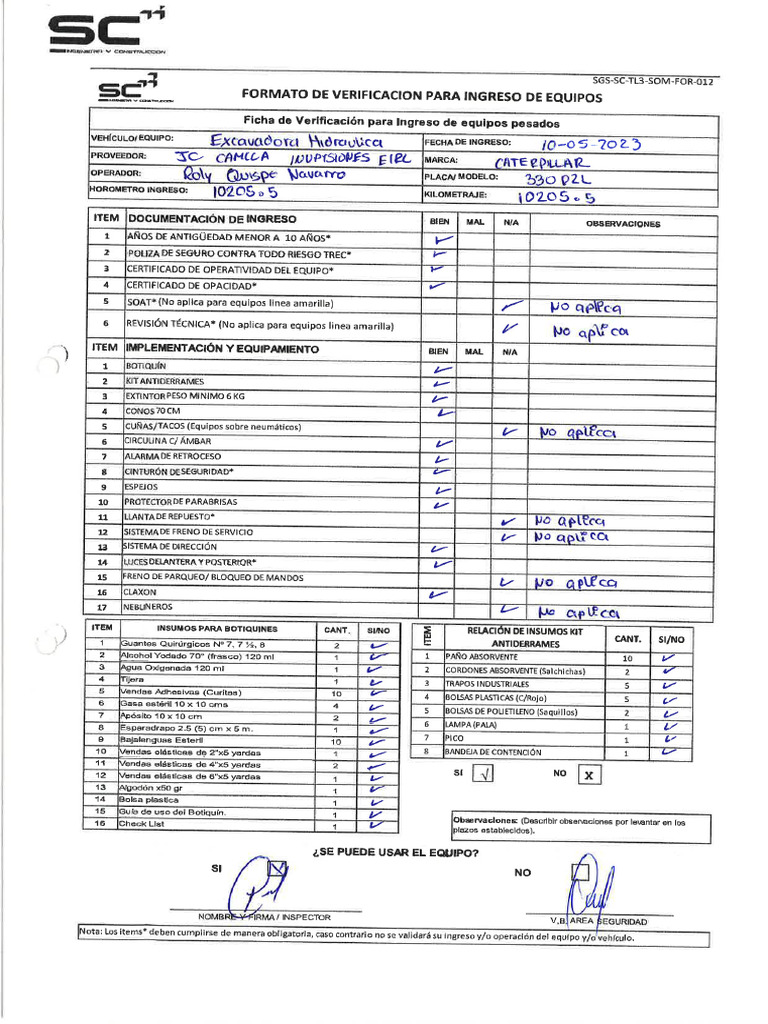 SC
INGENIERIA Y CONSTRUCCION
SGS-SC-TL3-SOM-FOR-012
SC
INGENIERIA Y CONSTRUCCION
FORMATO DE VERIFICACION PARA INGRESO DE EQUIPOS
Ficha de Verificación para Ingreso de equipos pesados
VEHÍCULO/EQUIPO: Excavadora Hidraulica FECHA DE INGRESO: 10-05-2023
PROVEEDOR: JC CAMLLA INVPISIONES EIRL MARCA: CATERPILLAR
OPERADOR: Roly Quispe Navarro PLACA/ MODELO: 330 D2L
HOROMETRO INGRESO: 10205.5 KILOMETRAJE: 10205.5
ITEM DOCUMENTACIÓN DE INGRESO BIEN MAL N/A OBSERVACIONES
1 AÑOS DE ANTIGÜEDAD MENOR A 10 AÑOS* ✓
2 POLIZA DE SEGURO CONTRA TODO RIESGO TREC* ✓
3 CERTIFICADO DE OPERATIVIDAD DEL EQUIPO* ✓
4 CERTIFICADO DE OPACIDAD* ✓
5 SOAT* (No aplica para equipos linea amarilla) ✓ No aplica
6 REVISIÓN TÉCNICA* (No aplica para equipos linea amarilla) ✓ No aplica
ITEM IMPLEMENTACIÓN Y EQUIPAMIENTO BIEN MAL N/A
1 BOTIQUÍN ✓
2 KIT ANTIDERRAMES ✓
3 EXTINTOR PESO MINIMO 6 KG ✓
4 CONOS 70 CM ✓
5 CUÑAS/TACOS (Equipos sobre neumáticos) ✓ No aplica
6 CIRCULINA C/ ÁMBAR ✓
7 ALARMA DE RETROCESO ✓
8 CINTURÓN DE SEGURIDAD* ✓
9 ESPEJOS ✓
10 PROTECTOR DE PARABRISAS ✓
11 LLANTA DE REPUESTO* ✓ No aplica
12 SISTEMA DE FRENO DE SERVICIO ✓ No aplica
13 SISTEMA DE DIRECCIÓN ✓
14 LUCES DELANTERA Y POSTERIOR* ✓
15 FRENO DE PARQUEO/ BLOQUEO DE MANDOS ✓ No aplica
16 CLAXON ✓
17 NEBLINEROS ✓ No aplica
ITEM INSUMOS PARA BOTIQUINES CANT. SI/NO
1 Guantes Quirúrgicos Nº 7, 7 ½, 8 2 ✓
2 Alcohol Yodado 70° (frasco) 120 ml 1 ✓
3 Agua Oxigenada 120 ml 1 ✓
4 Tijera 1 ✓
5 Vendas Adhesivas (Curitas) 10 ✓
6 Gasa estéril 10 x 10 cms 4 ✓
7 Apósito 10 x 10 cm 2 ✓
8 Esparadrapo 2.5 (5) cm x 5 m. 1 ✓
9 Bajalenguas Esteril 10 ✓
10 Vendas elásticas de 2"x5 yardas 1 ✓
11 Vendas elásticas de 4"x5 yardas 2 ✓
12 Vendas elásticas de 6"x5 yardas 1 ✓
13 Algodón x50 gr 1 ✓
14 Bolsa plastica 1 ✓
15 Guía de uso del Botiquín. 1 ✓
16 Check List 1 ✓
ITEM RELACIÓN DE INSUMOS KIT ANTIDERRAMES CANT. SI/NO
1 PAÑO ABSORVENTE 10 ✓
2 CORDONES ABSORVENTE (Salchichas) 2 ✓
3 TRAPOS INDUSTRIALES 5 ✓
4 BOLSAS PLASTICAS (C/Rojo) 5 ✓
5 BOLSAS DE POLIETILENO (Saquillos) 2 ✓
6 LAMPA (PALA) 1 ✓
7 PICO 1 ✓
8 BANDEJA DE CONTENCIÓN 1 ✓
SI √ NO X
Observaciones: (Describir observaciones por levantar en los
plazos establecidos).
¿SE PUEDE USAR EL EQUIPO?
SI ✓ NO
NOMBRE Y FIRMA / INSPECTOR V.B. AREA SEGURIDAD
Nota: Los items* deben cumplirse de manera obligatoria, caso contrario no se validará su ingreso y/o operación del equipo y/o vehículo.